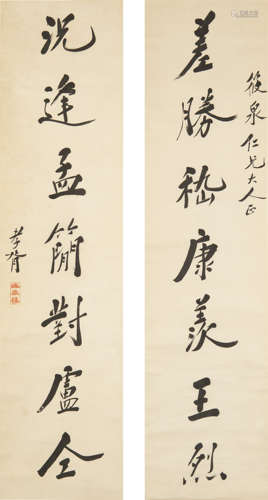 差勝嵇康羨王烈
泉仁兄大人正
況逢孟簡對盧仝
孝胥